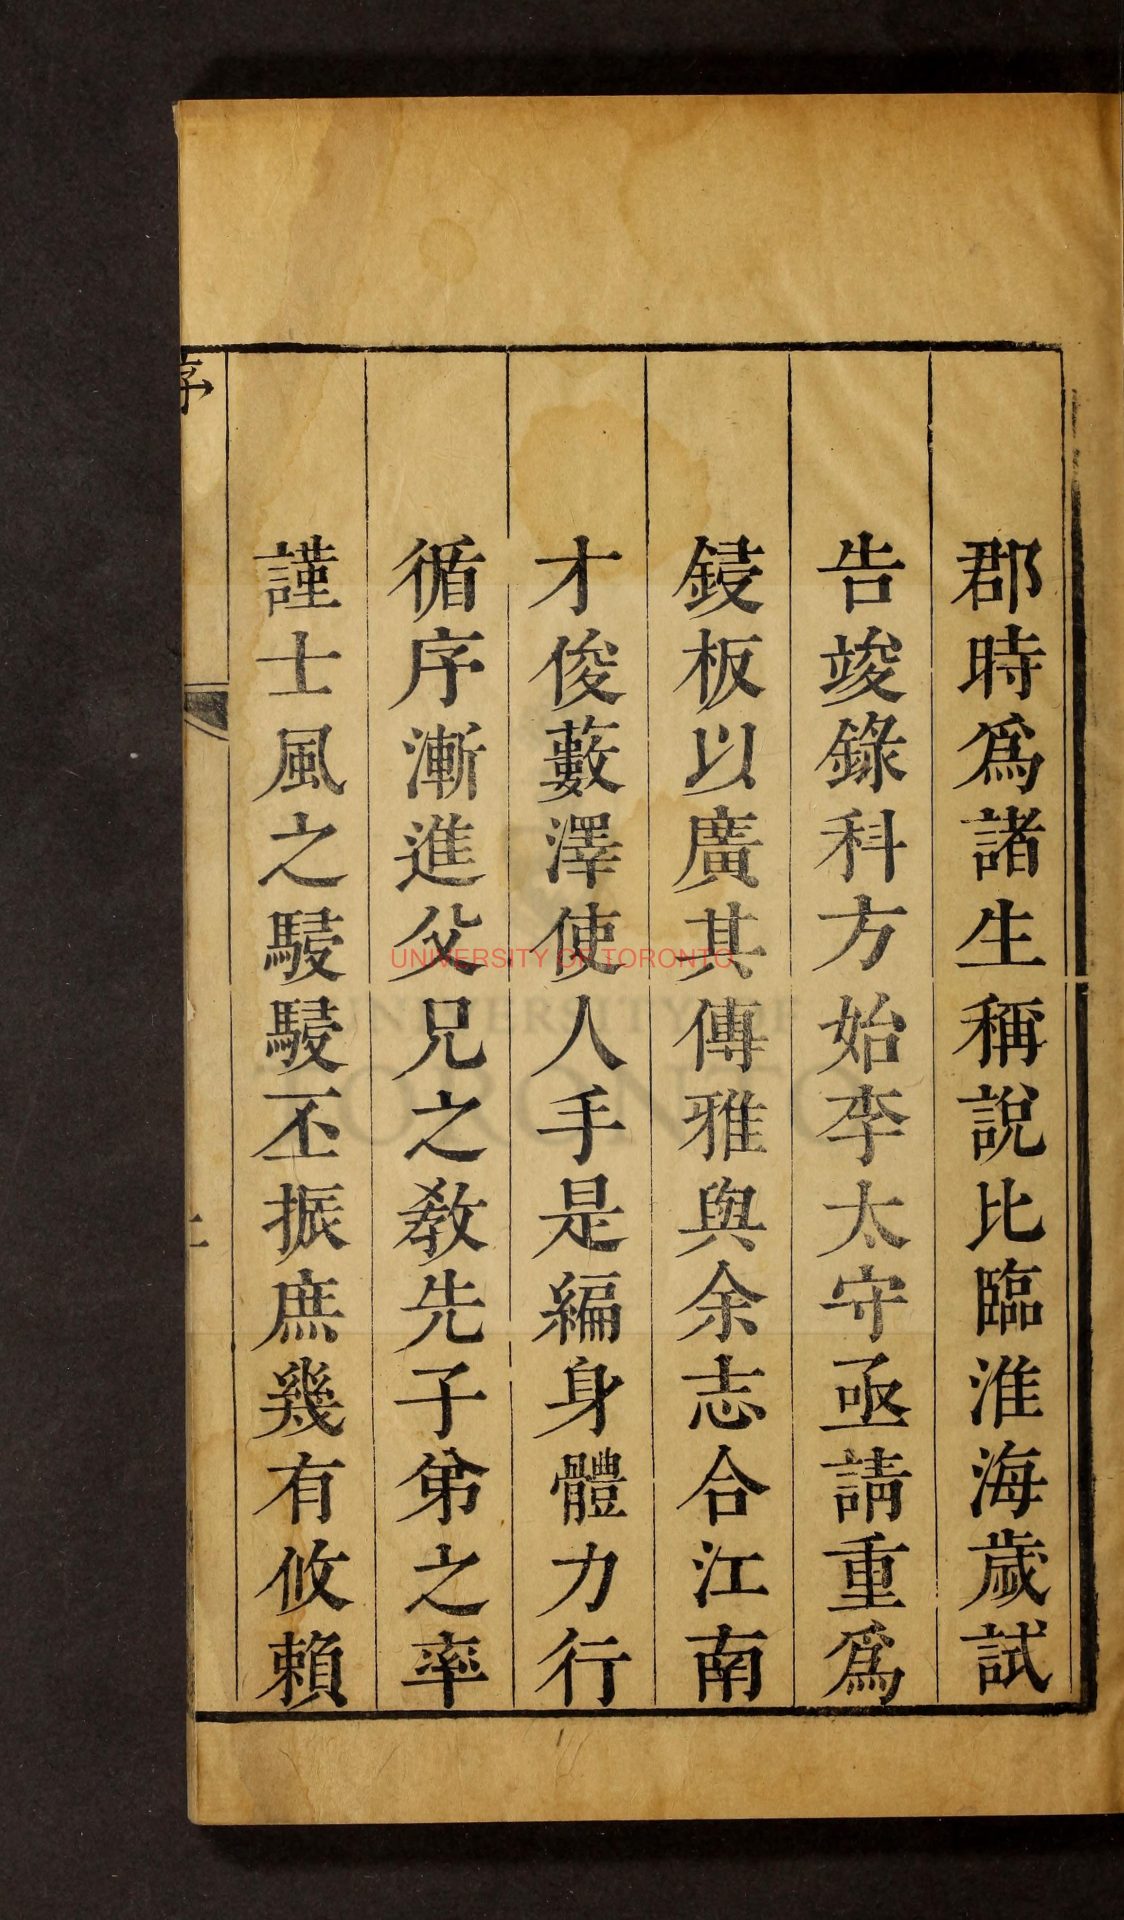 郡時爲諸生稱說比臨淮海歲試
告竣錄科方始李太守亟請重爲
鋟板以廣其傳雅與余志合江南
才俊藪澤使人手是編身體力行
循序漸進父兄之敎先子弟之率
謹士風之駸駸丕振庶幾有攸賴
序
UNIVERSITY OF TORONTO
UNIVERSITY OF
TORONTO